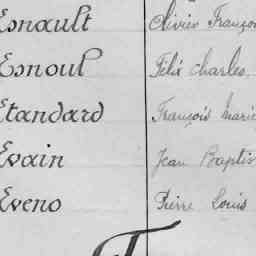 Esnault Olivier Françoi
Esnoul Félix Charles
Etandard François Marie
Evain Jean Baptis
Eveno Pierre Louis